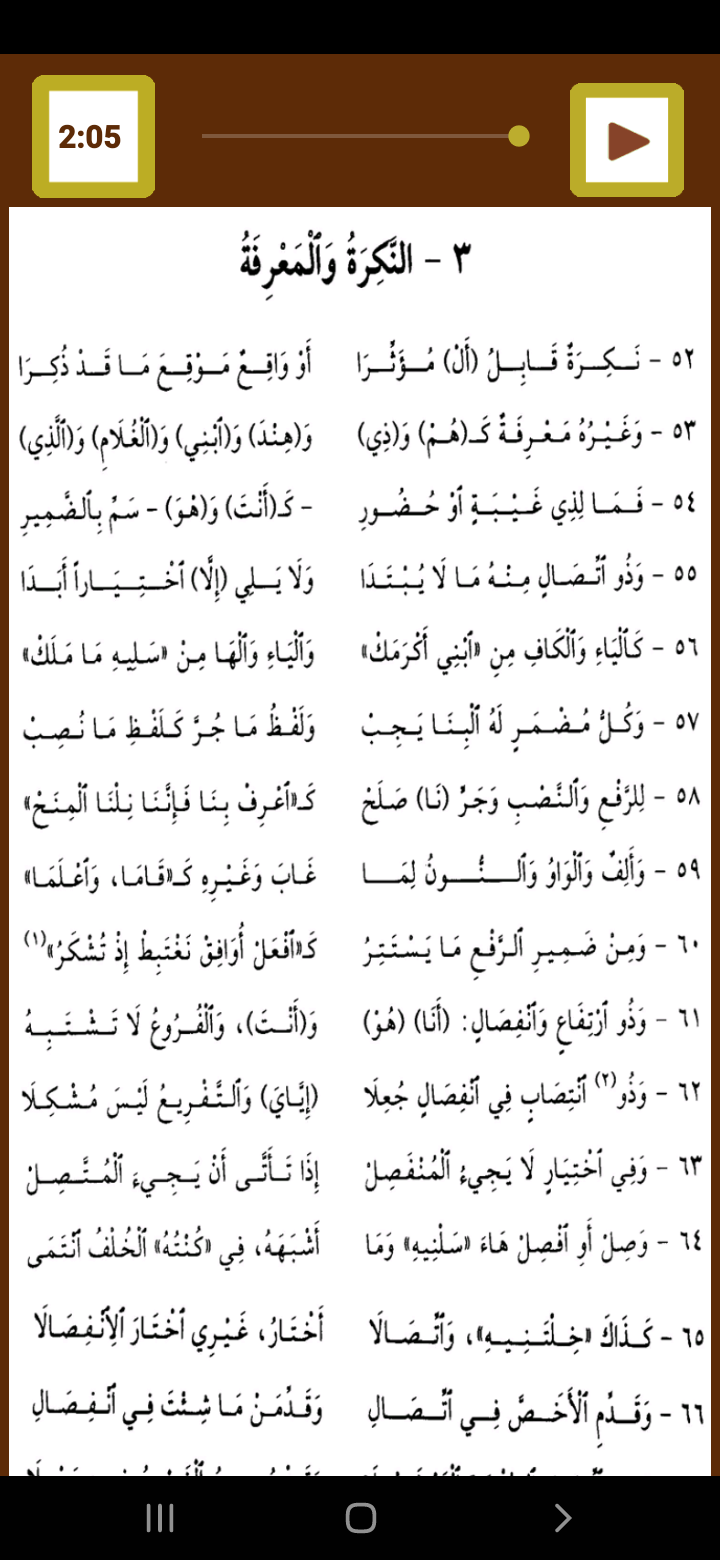 2:05
٣ - النَّكِرَةُ وَٱلْمَعْرِفَةُ
٥٢ - نَكِرَةٌ قَابِلُ (أَلْ) مُؤَثِّرَا أَوْ وَاقِعٌ مَوْقِعَ مَا قَدْ ذُكِرَا
٥٣ - وَغَيْرُهُ مَعْرِفَةٌ كَـ(هُمْ) وَ(ذِي) وَ(هِنْدَ) وَ(ٱبْنِي) وَ(ٱلْغُلَامِ) وَ(ٱلَّذِي)
٥٤ - فَمَا لِذِي غَيْبَةٍ ٱوْ حُضُورِ - كَـ(أَنْتَ) وَ(هْوَ) - سَمِّ بِٱلضَّمِيرِ
٥٥ - وَذُو ٱتِّصَالٍ مِنْهُ مَا لَا يُبْتَدَا وَلَا يَلِي (إِلَّا) ٱخْتِيَاراً أَبَدَا
٥٦ - كَٱلْيَاءِ وَٱلْكَافِ مِنِ «ٱبْنِي أَكْرَمَكْ» وَٱلْيَاءِ وَٱلْهَا مِنْ «سَلِيهِ مَا مَلَكْ»
٥٧ - وَكُلُّ مُضْمَرٍ لَهُ ٱلْبِنَا يَجِبْ وَلَفْظُ مَا جُرَّ كَلَفْظِ مَا نُصِبْ
٥٨ - لِلرَّفْعِ وَٱلنَّصْبِ وَجَرٍّ (نَا) صَلَحْ كَـ«ٱعْرِفْ بِنَا فَإِنَّنَا نِلْنَا ٱلْمِنَحْ»
٥٩ - وَأَلِفٌ وَٱلْوَاوُ وَٱلنُّونُ لِمَا غَابَ وَغَيْرِهِ كَـ«قَامَا، وَٱعْلَمَا»
٦٠ - وَمِنْ ضَمِيرِ ٱلرَّفْعِ مَا يَسْتَتِرُ كَـ«ٱفْعَلْ أُوَافِقْ نَغْتَبِطْ إِذْ تُشْكَرُ»(١)
٦١ - وَذُو ٱرْتِفَاعٍ وَٱنْفِصَالٍ: (أَنَا) (هُوْ) وَ(أَنْتَ)، وَٱلْفُرُوعُ لَا تَشْتَبِهُ
٦٢ - وَذُو(٢) ٱنْتِصَابٍ فِي ٱنْفِصَالٍ جُعِلَا (إِيَّايَ) وَٱلتَّفْرِيعُ لَيْسَ مُشْكِلَا
٦٣ - وَفِي ٱخْتِيَارٍ لَا يَجِيءُ ٱلْمُنْفَصِلْ إِذَا تَأَتَّى أَنْ يَجِيءَ ٱلْمُتَّصِلْ
٦٤ - وَصِلْ أَوِ ٱفْصِلْ هَاءَ «سَلْنِيهِ» وَمَا أَشْبَهَهُ، فِي «كُنْتُهُ» ٱلْخُلْفُ ٱنْتَمَى
٦٥ - كَذَاكَ «خِلْتَنِيهِ»، وَٱتِّصَالَا أَخْتَارُ، غَيْرِي ٱخْتَارَ ٱلِٱنْفِصَالَا
٦٦ - وَقَدِّمِ ٱلْأَخَصَّ فِي ٱتِّصَالِ وَقَدِّمَنْ مَا شِئْتَ فِي ٱنْفِصَالِ